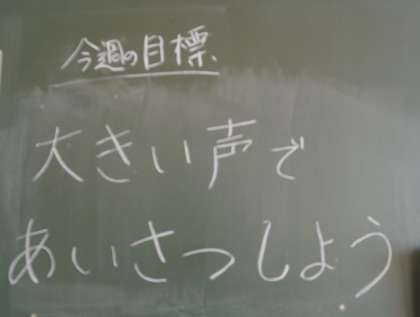 今週の目標
大きい声で
あいさつしよう